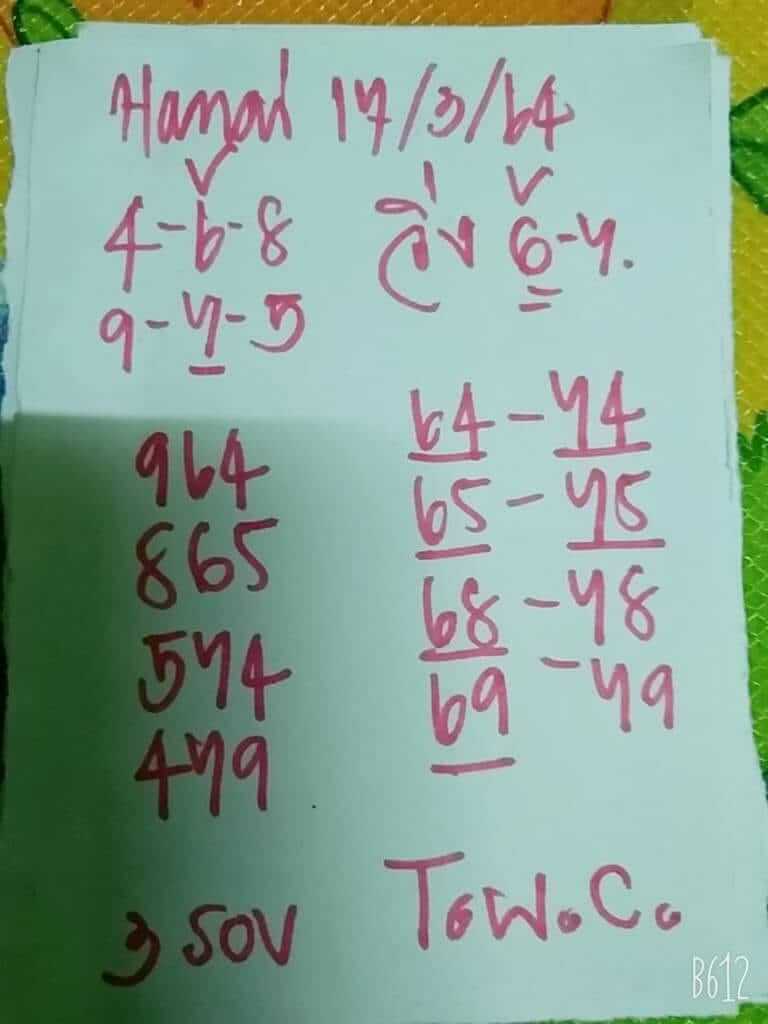 Hanoi 17/3/64
4-6-8
9-7-5
วิ่ง 6-7.
964
865
574
479
64-74
65-75
68-78
69-79
3 รอบ
T.W.C.
B612